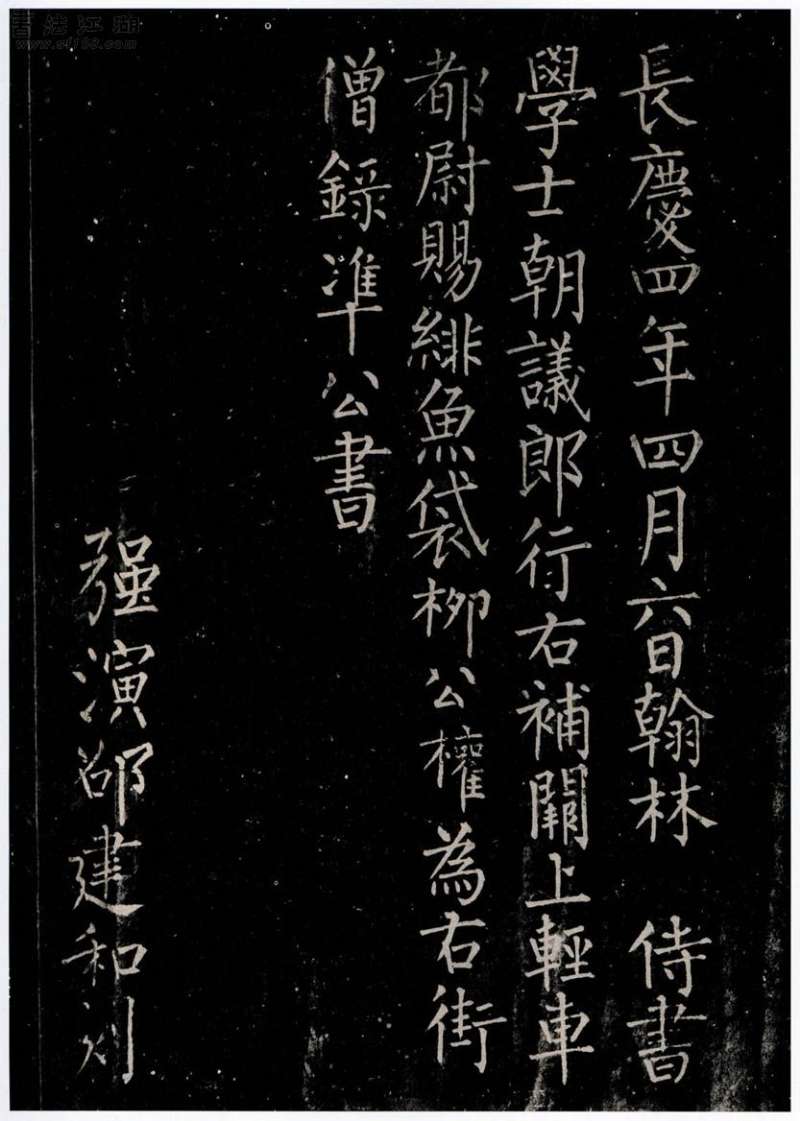 長慶四年四月六日翰林 侍書
學士朝議郎行右補闕上輕車
都尉賜緋魚袋柳公權為右街
僧錄準公書
强演邵建和刻
書法江湖